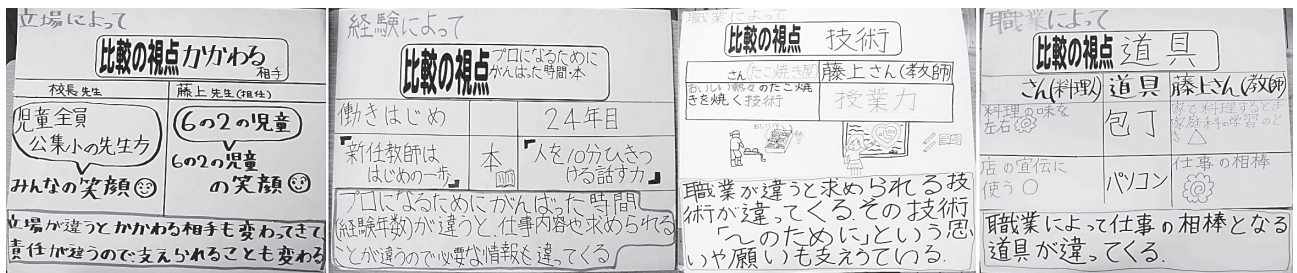 立場によって
比較の視点 かかわる
相手
校長先生
藤上先生(担任)
児童全員
公集小の先生方
みんなの笑顔
6の2の児童
6の2の児童
の笑顔
立場が違うとかかわる相手も変わってきて
責任が違うので支えられることも変わる
経験によって
比較の視点 プロになるために
がんばった時間・本
働きはじめ
24年目
『新任教師は
はじめの一歩』
本
『人を10分ひきつ
ける話す力』
プロになるためにがんばった時間
(経験年数)が違うと、仕事内容や求められる
ことが違うので必要な情報も違ってくる
職業によって
比較の視点 技術
さん(たこ焼き屋)
藤上さん(教師)
おいしい熱々のたこ焼
きを焼く技術
授業力
職業が違うと求められる技
術が違ってくる。その技術
「~のために」という思
いや願いも支えうている.
職業によって
比較の視点 道具
さん(料理人)
道具
藤上さん(教師)
料理の味を
左右
包丁
家で料理するとき
家庭科の学習のと
き △
店の宣伝に
使う ○
パソコン
仕事の相棒
職業によって仕事の相棒となる
道具が違ってくる.